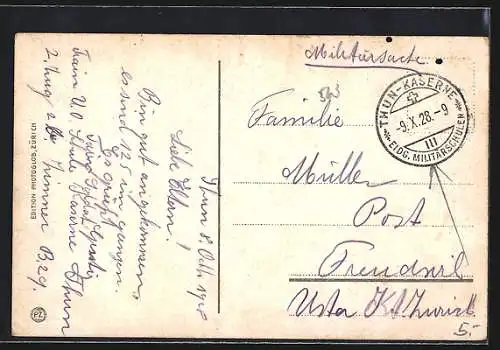 Militärsache
Familie
Müller
Post
Freudwil
Uster Kt. Zürich
THUN-KASERNE
-9.X.28.-9
III
EIDG. MILITÄRSCHULEN
Thun 8. Okt. 1928
Liebe Eltern!
Bin gut angekommen,
es sind 125 im ganzen.
Es grüsst
Train U.O. Schule Kaserne Thun
2. Zug Zimmer B 29.
EDITION PHOTOGLOB, ZÜRICH
PZ
5.-